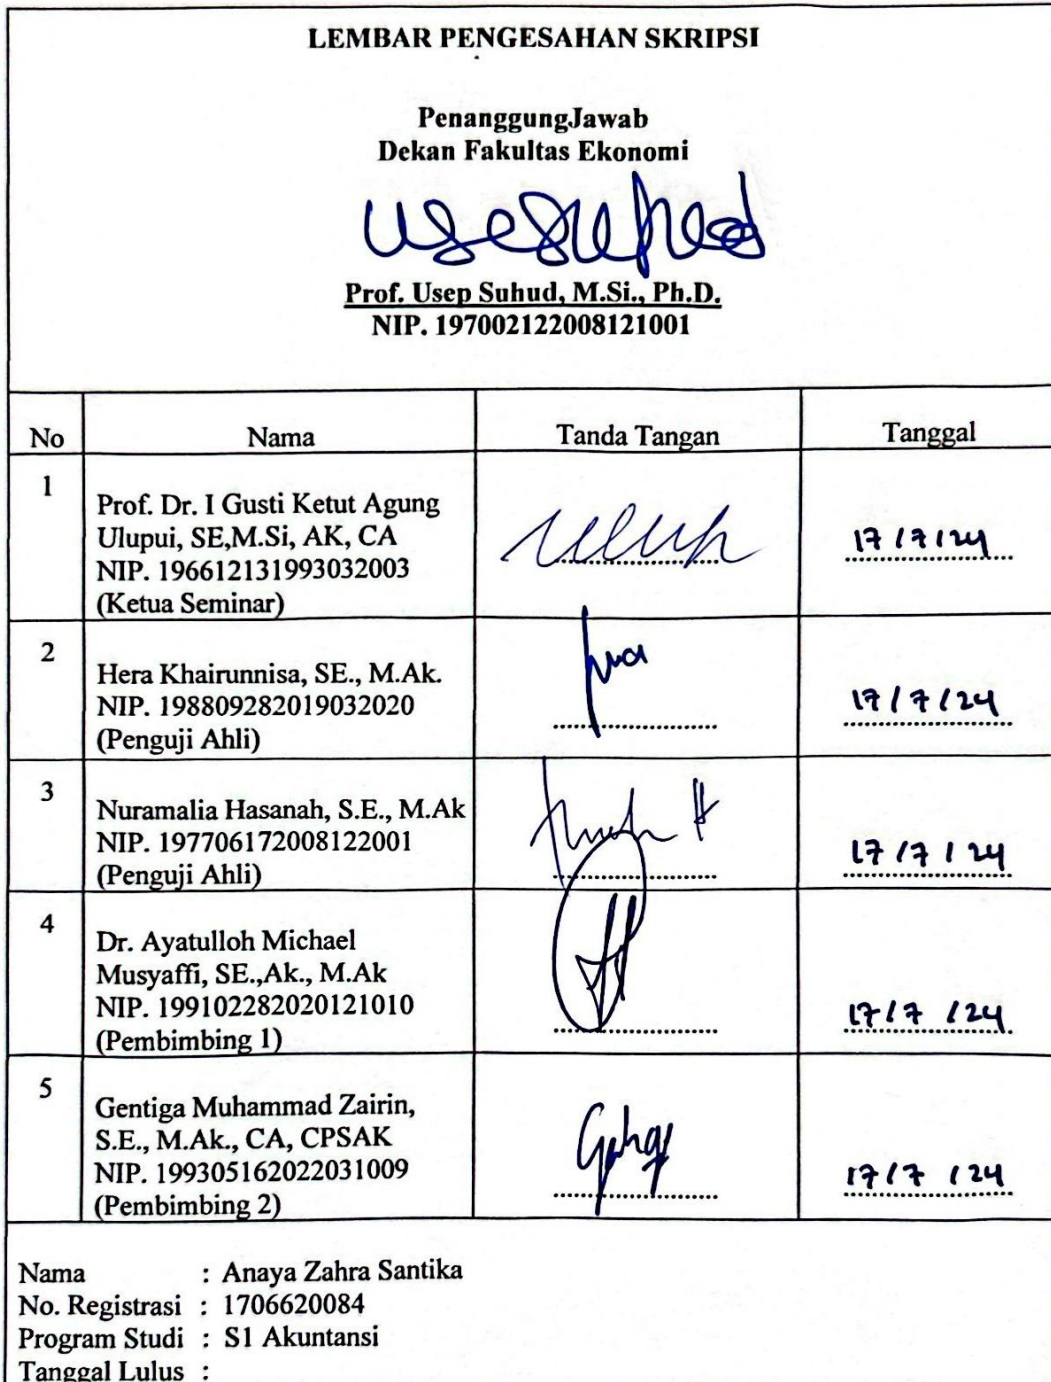 LEMBAR PENGESAHAN SKRIPSI
PenanggungJawab
Dekan Fakultas Ekonomi
Prof. Usep Suhud, M.Si., Ph.D.
NIP. 197002122008121001
No Nama Tanda Tangan Tanggal
1
Prof. Dr. I Gusti Ketut Agung
Ulupui, SE,M.Si, AK, CA
NIP. 196612131993032003
(Ketua Seminar)
17/7/24
2
Hera Khairunnisa, SE., M.Ak.
NIP. 198809282019032020
(Penguji Ahli)
17/7/24
3
Nuramalia Hasanah, S.E., M.Ak
NIP. 197706172008122001
(Penguji Ahli)
17/7/24
4
Dr. Ayatulloh Michael
Musyaffi, SE.,Ak., M.Ak
NIP. 199102282020121010
(Pembimbing 1)
17/7/24
5
Gentiga Muhammad Zairin,
S.E., M.Ak., CA, CPSAK
NIP. 199305162022031009
(Pembimbing 2)
17/7/24
Nama : Anaya Zahra Santika
No. Registrasi : 1706620084
Program Studi : S1 Akuntansi
Tanggal Lulus :